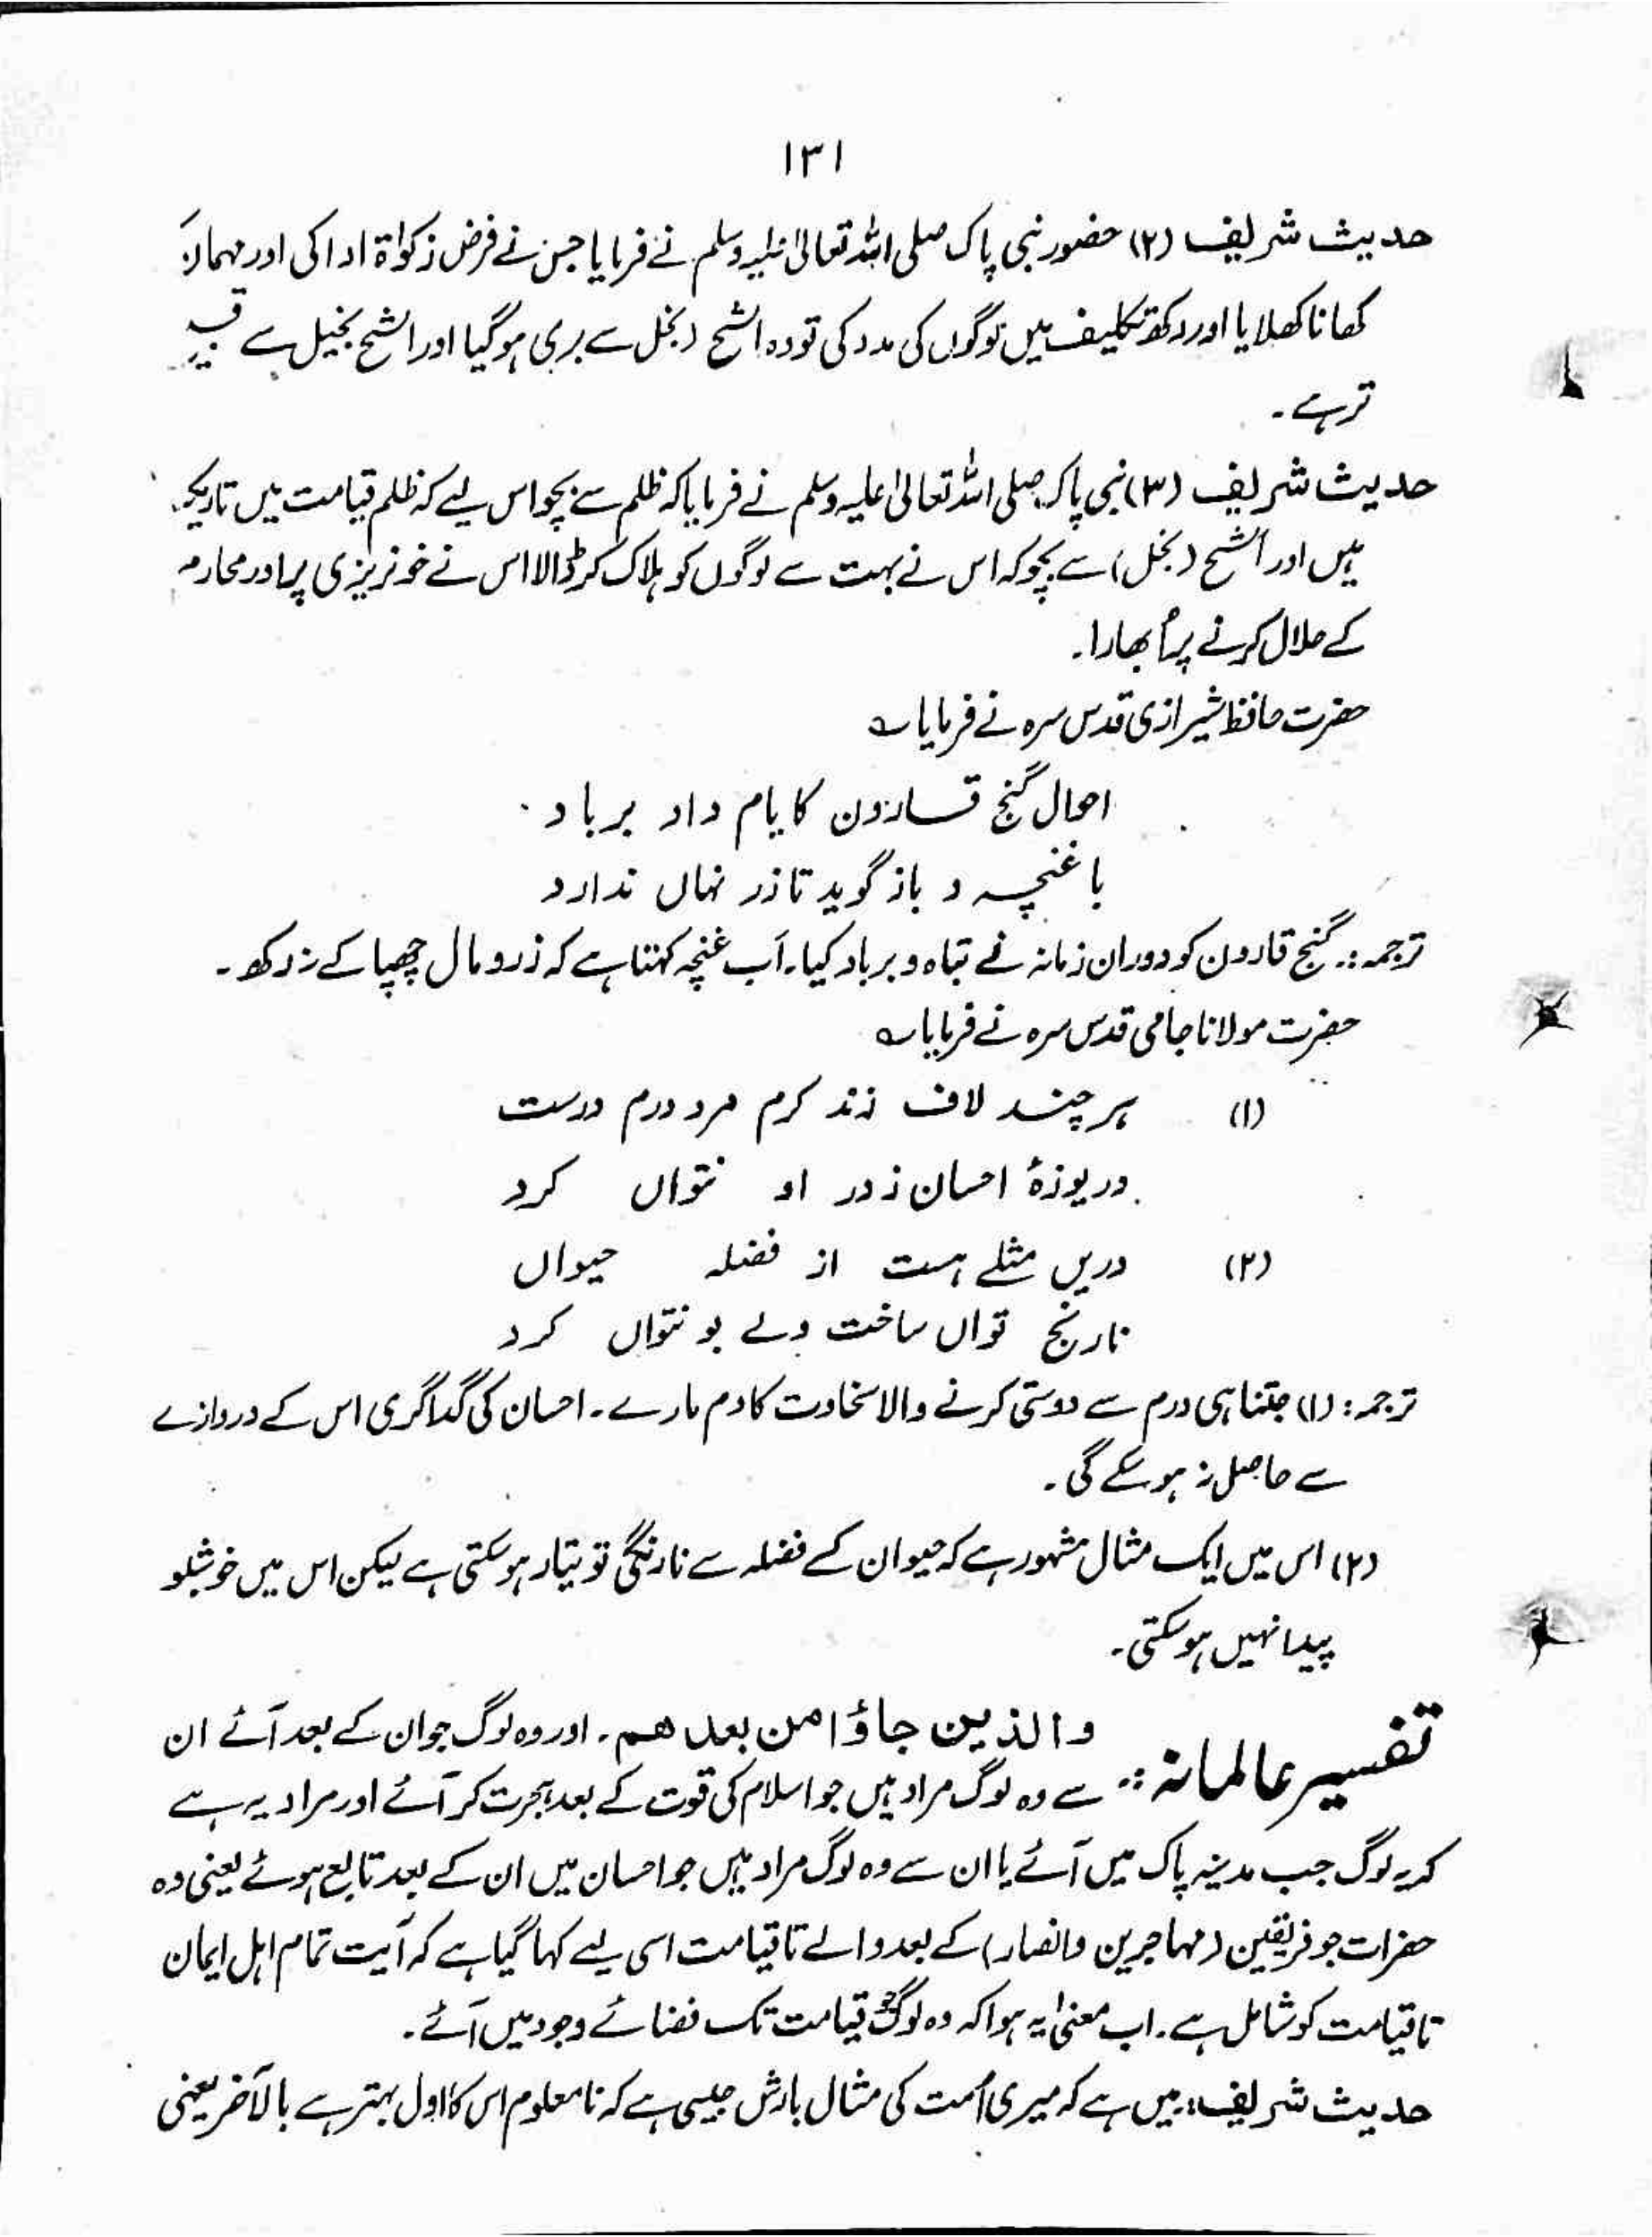 ۱۳۱
حدیث شریف (۲) حضور نبی پاک صلی اللہ تعالیٰ علیہ وسلم نے فرمایا جس نے فرض زکوٰۃ ادا کی اور مہمان
کھانا کھلایا اور دکھ تکلیف میں لوگوں کی مدد کی تو وہ الشح (بخل سے بری ہوگیا اور الشح بخیل سے قبیح
تر ہے۔
حدیث شریف (۳) نبی پاک صلی اللہ تعالیٰ علیہ وسلم نے فرمایا کہ ظلم سے بچو اس لیے کہ ظلم قیامت میں تاریکی
ہیں اور الشح (بخل) سے بچو کہ اس نے بہت سے لوگوں کو ہلاک کر ڈالا اس نے خونریزی پر اور محارم
کے حلال کرنے پر اُبھارا۔
حضرت حافظ شیرازی قدس سرہ نے فرمایا ؎
احوال گنج قارون کایام داد برباد
با غنچہ و باز گوید تا زر نہاں ندارد
ترجمہ :۔ گنج قارون کو دوران زمانہ نے تباہ و برباد کیا۔ اَب غنچہ کہتا ہے کہ زر و مال چھپا کے نہ رکھ۔
حضرت مولانا جامی قدس سرہ نے فرمایا ؎
(۱) ہر چند لاف زند کرم مرد درم درست
دریوزۂ احسان ز در او نتواں کرد
(۲) دریں مثلے ہست از فضلہ حیواں
نارنج تواں ساخت ولے بو نتواں کرد
ترجمہ : (۱) جتنا ہی درم سے دوستی کرنے والا سخاوت کا دم مارے۔ احسان کی گداگری اس کے دروازے
سے حاصل نہ ہو سکے گی۔
(۲) اس میں ایک مثال مشہور ہے کہ حیوان کے فضلہ سے نارنگی تو تیار ہو سکتی ہے لیکن اس میں خوشبو
پیدا نہیں ہو سکتی۔
تفسیر عالمانہ :۔ والذین جاؤا من بعد ھم۔ اور وہ لوگ جو ان کے بعد آئے ان
سے وہ لوگ مراد ہیں جو اسلام کی قوت کے بعد ہجرت کر آئے اور مراد یہ ہے
کہ یہ لوگ جب مدینہ پاک میں آئے یا ان سے وہ لوگ مراد ہیں جو احسان میں ان کے بعد تابع ہوئے یعنی وہ
حضرات جو فریقین (مہاجرین وانصار) کے بعد والے تا قیامت اسی لیے کہا گیا ہے کہ آیت تمام اہل ایمان
تا قیامت کو شامل ہے۔ اب معنیٰ یہ ہوا کہ وہ لوگ جو قیامت تک فضائے وجود میں آئے۔
حدیث شریف : میں ہے کہ میری اُمت کی مثال بارش جیسی ہے کہ نامعلوم اس کا اول بہتر ہے یا آخر یعنی